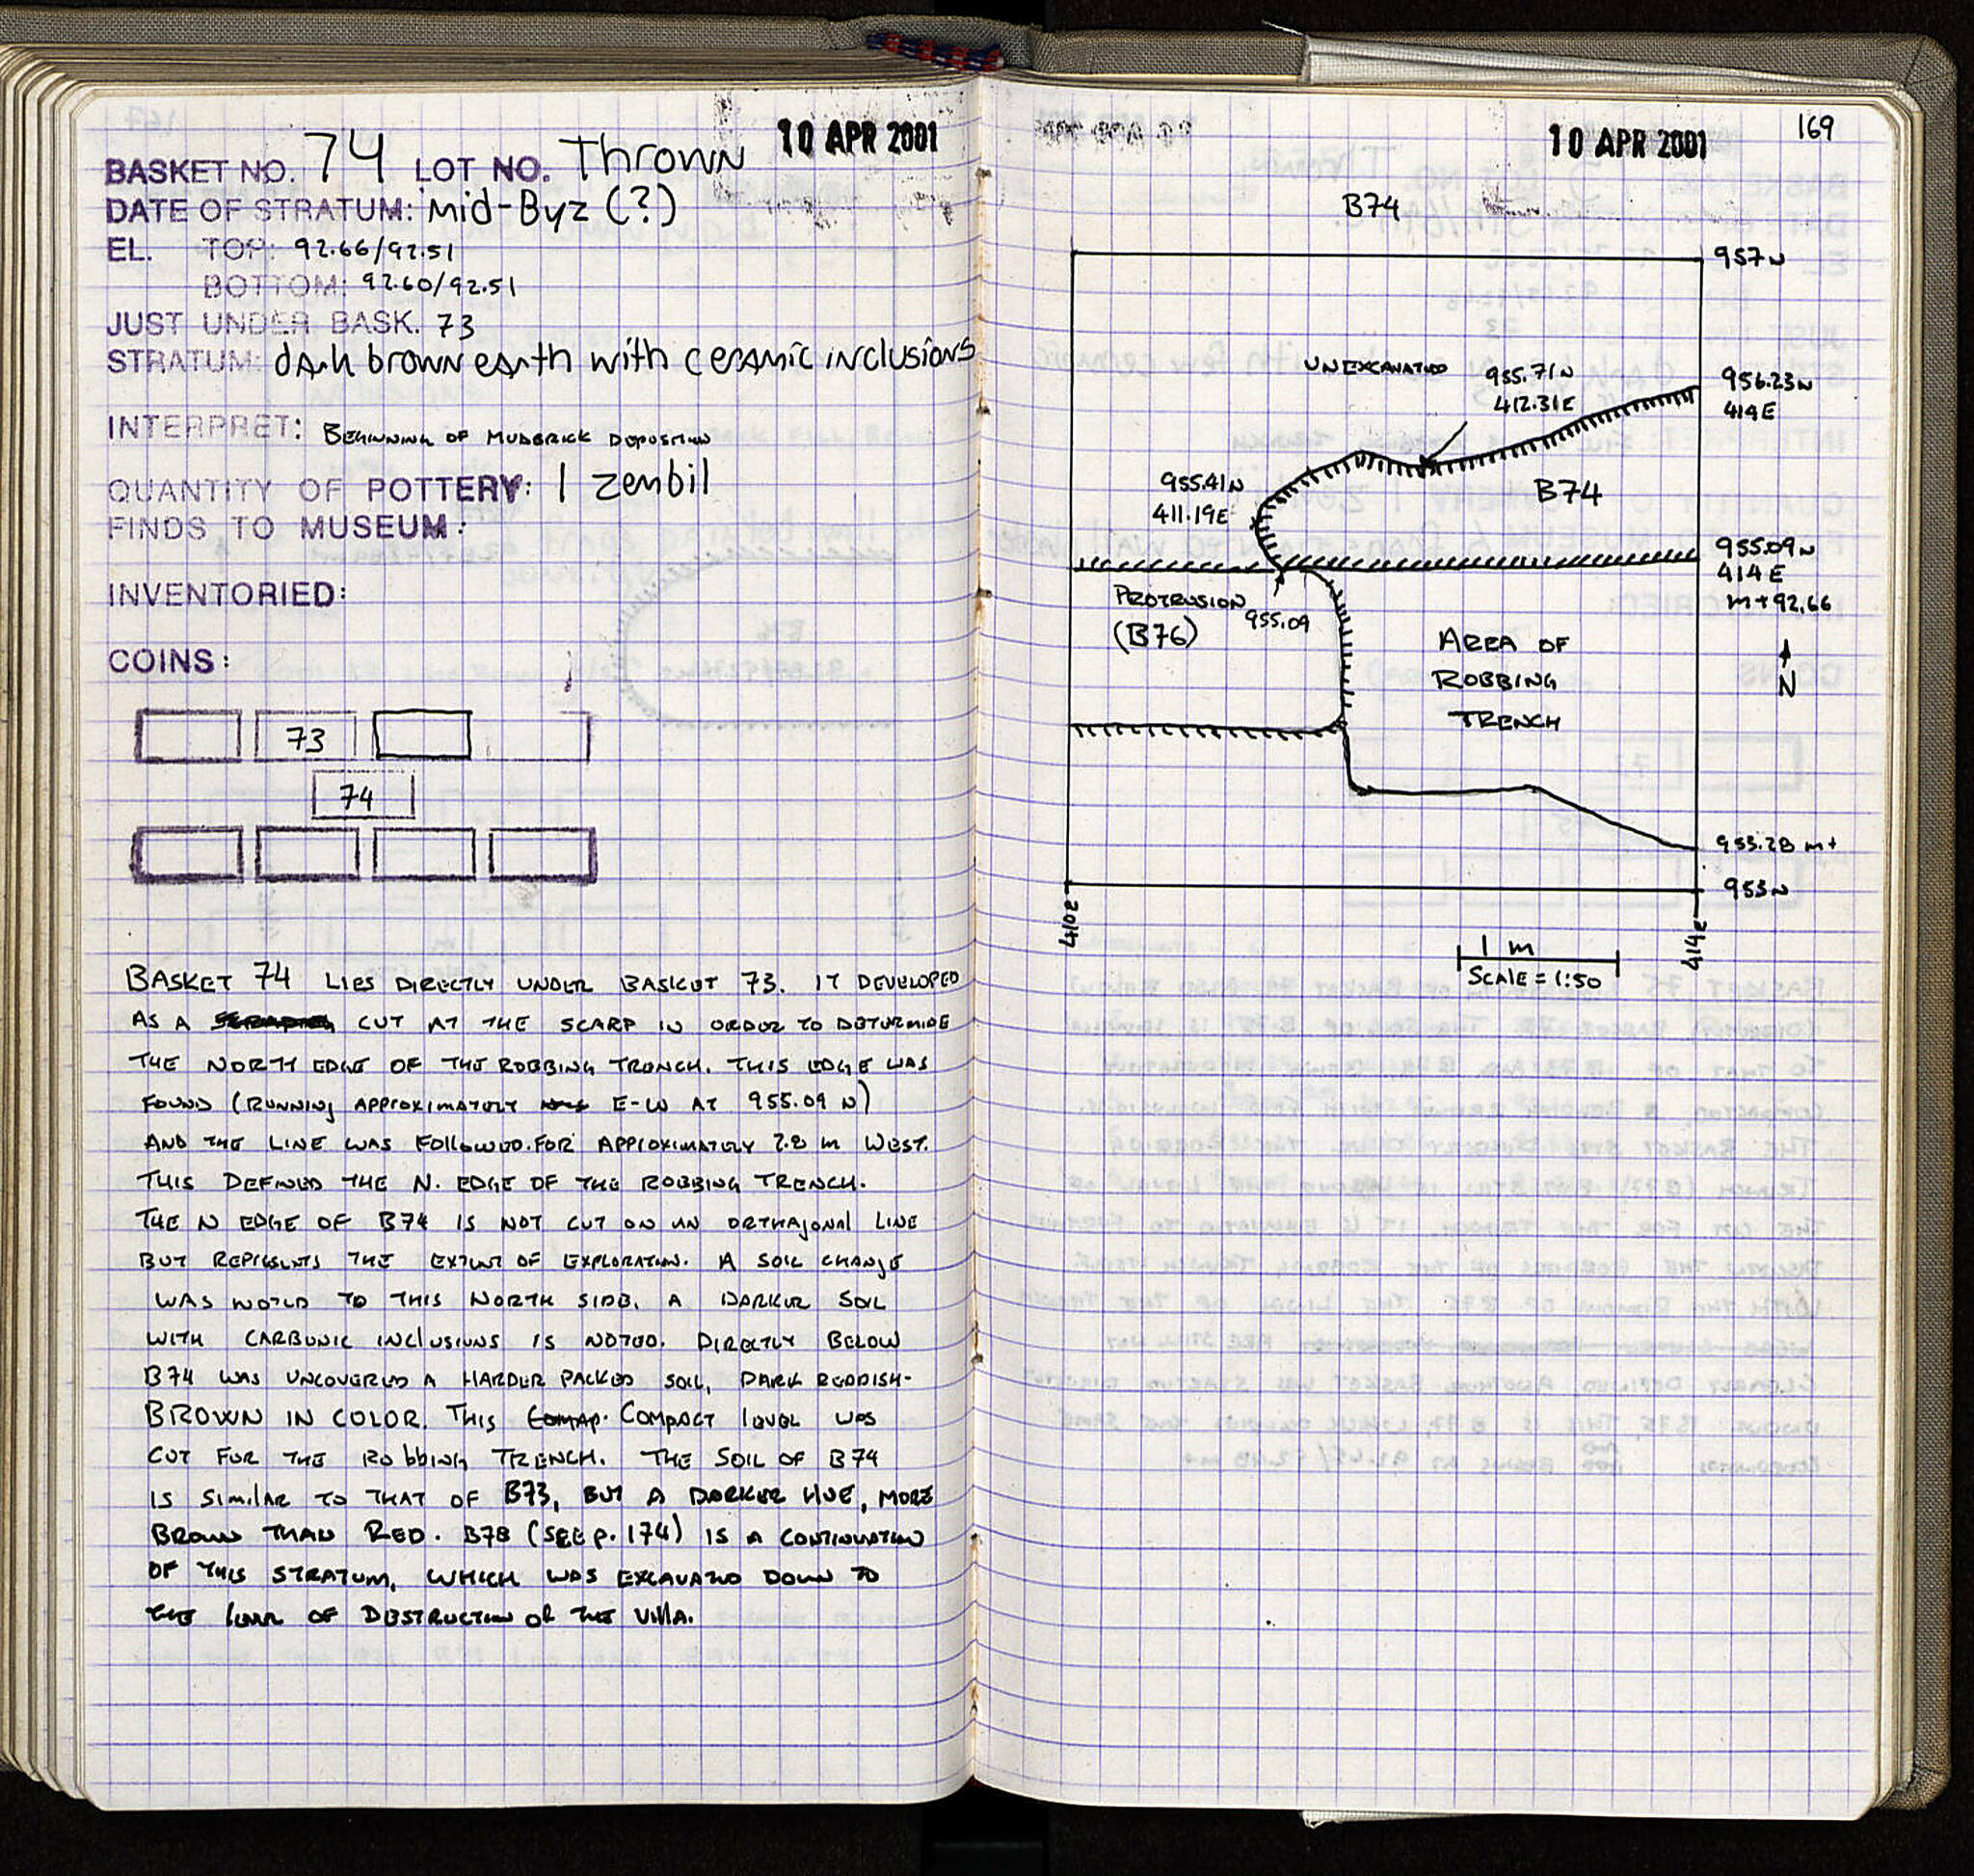 10 APR 2001
BASKET NO. 74 LOT NO. Thrown
DATE OF STRATUM: Mid-Byz (?)
EL. TOP: 92.66/92.51
BOTTOM: 92.60/92.51
JUST UNDER BASK. 73
STRATUM: dark brown earth with ceramic inclusions
INTERPRET: BEGINNING OF MUDBRICK DEPOSITION
QUANTITY OF POTTERY: 1 zembil
FINDS TO MUSEUM:
INVENTORIED:
COINS:
73
74
BASKET 74 LIES DIRECTLY UNDER BASKET 73. IT DEVELOPED
AS A CUT AT THE SCARP IN ORDER TO DETERMINE
THE NORTH EDGE OF THE ROBBING TRENCH. THIS EDGE WAS
FOUND (RUNNING APPROXIMATELY E-W AT 955.09 N)
AND THE LINE WAS FOLLOWED FOR APPROXIMATELY 2.8 m WEST.
THIS DEFINED THE N. EDGE OF THE ROBBING TRENCH.
THE N EDGE OF B74 IS NOT CUT ON AN ORTHAGONAL LINE
BUT REPRESENTS THE EXTENT OF EXPLORATION. A SOIL CHANGE
WAS NOTED TO THIS NORTH SIDE. A DARKER SOIL
WITH CARBONIC INCLUSIONS IS NOTED. DIRECTLY BELOW
B74 WAS UNCOVERED A HARDER PACKED SOIL, DARK REDDISH-
BROWN IN COLOR. THIS COMPACT LEVEL WAS
CUT FOR THE ROBBING TRENCH. THE SOIL OF B74
IS SIMILAR TO THAT OF B73, BUT A DARKER HUE, MORE
BROWN THAN RED. B78 (SEE P. 174) IS A CONTINUATION
OF THIS STRATUM, WHICH WAS EXCAVATED DOWN TO
THE LEVEL OF DESTRUCTION OF THE VILLA.
10 APR 2001
169
B74
957N
UNEXCAVATED
955.71N
412.31E
956.23N
414E
955.41N
411.19E
B74
955.09N
414E
m+92.66
PROTRUSION
(B76)
955.09
AREA OF
ROBBING
TRENCH
N
953.28 m+
953N
410E
414E
1 m
SCALE = 1:50